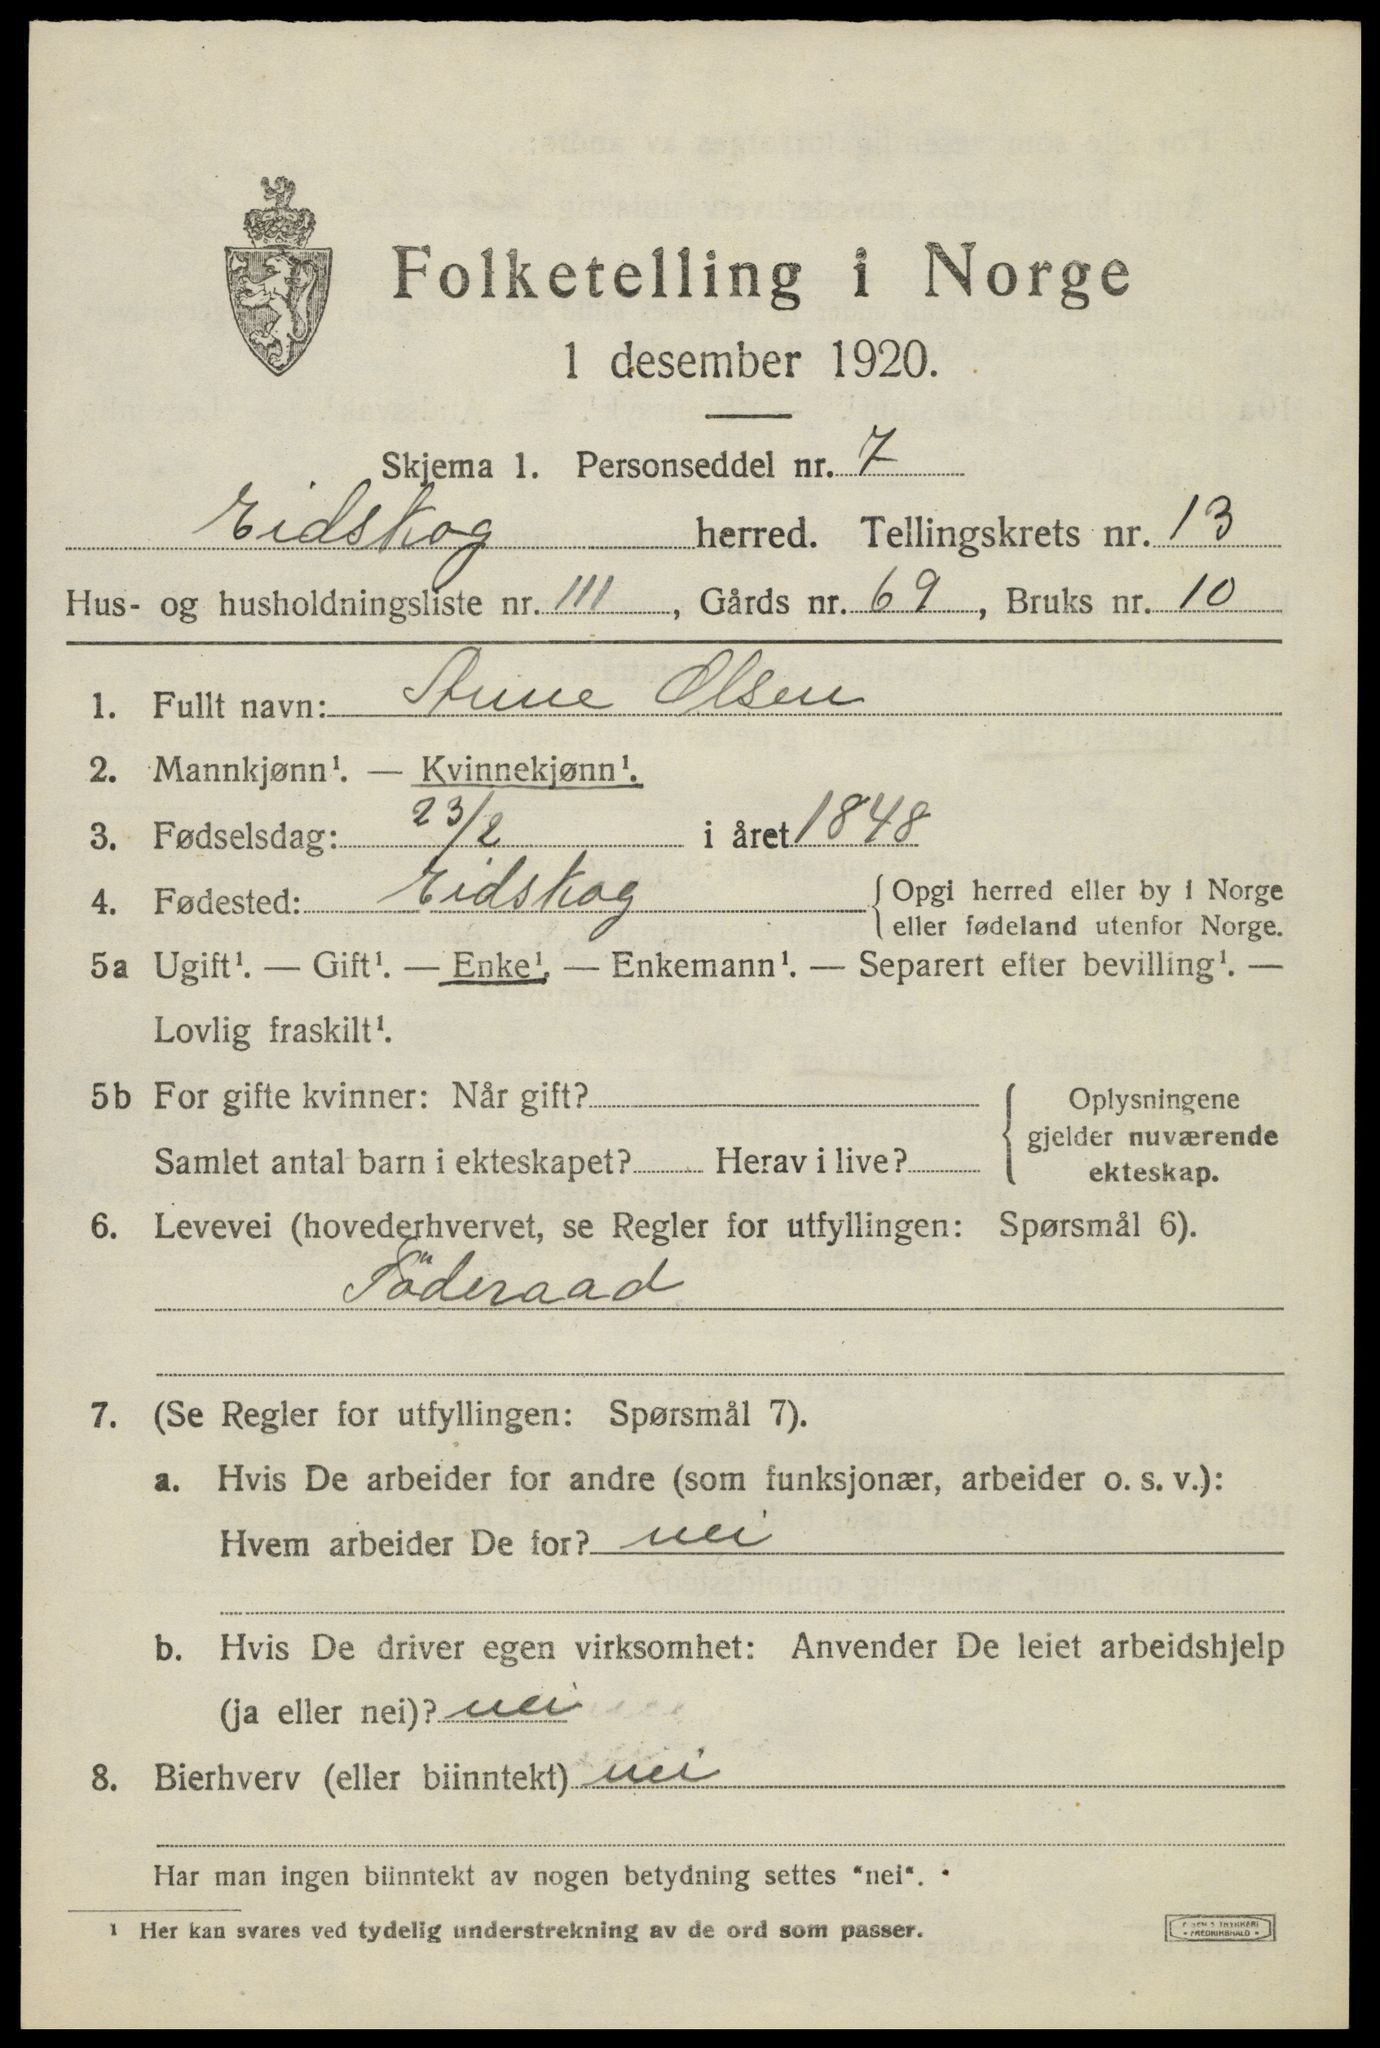 Folketelling i Norge
1 desember 1920.
Skjema 1. Personseddel nr. 7
Eidskog herred. Tellingskrets nr. 13
Hus- og husholdningsliste nr. 111, Gårds nr. 69, Bruks nr. 10
1. Fullt navn: Anne Olsen
2. Mannkjønn¹. — Kvinnekjønn¹.
3. Fødselsdag: 23/2 i året 1848
4. Fødested: Eidskog {Opgi herred eller by i Norge
eller fødeland utenfor Norge.
5a Ugift¹. — Gift¹. — Enke¹. — Enkemann¹. — Separert efter bevilling¹. —
Lovlig fraskilt¹.
5b For gifte kvinner: Når gift?
Samlet antal barn i ekteskapet? Herav i live?
Oplysningene
gjelder nuværende
ekteskap.
6. Levevei (hovederhvervet, se Regler for utfyllingen: Spørsmål 6).
Föderaad
7. (Se Regler for utfyllingen: Spørsmål 7).
a. Hvis De arbeider for andre (som funksjonær, arbeider o. s. v.):
Hvem arbeider De for? nei
b. Hvis De driver egen virksomhet: Anvender De leiet arbeidshjelp
(ja eller nei)? nei
8. Bierhverv (eller biinntekt) nei
Har man ingen biinntekt av nogen betydning settes "nei".
¹ Her kan svares ved tydelig understrekning av de ord som passer.